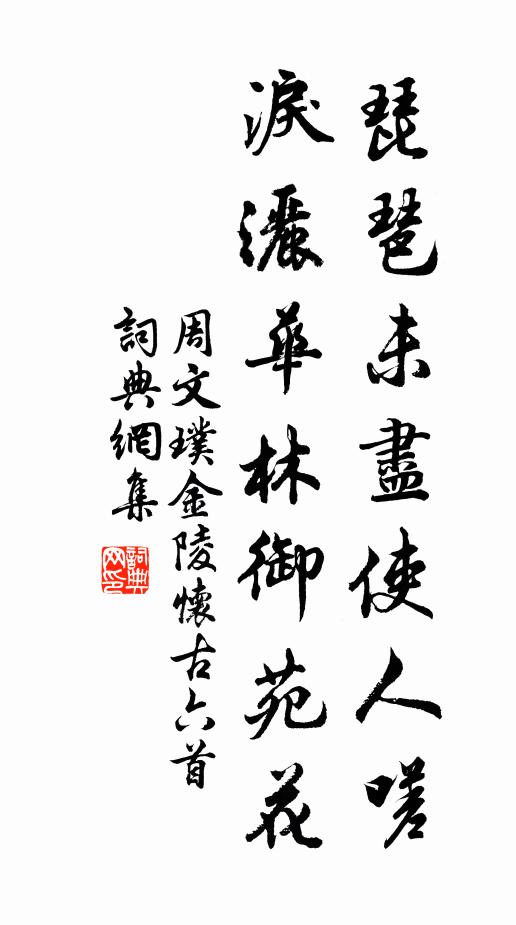 琵琶未盡使人嗟
淚灑華林御苑花
周文璞金陵懷古六首
詞典網集
詞典网印